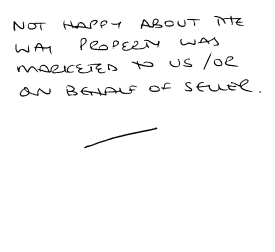 NOT HAPPY ABOUT THE
WAY PROPERTY WAS
MARKETED TO US / OR
ON BEHALF OF SELLER.